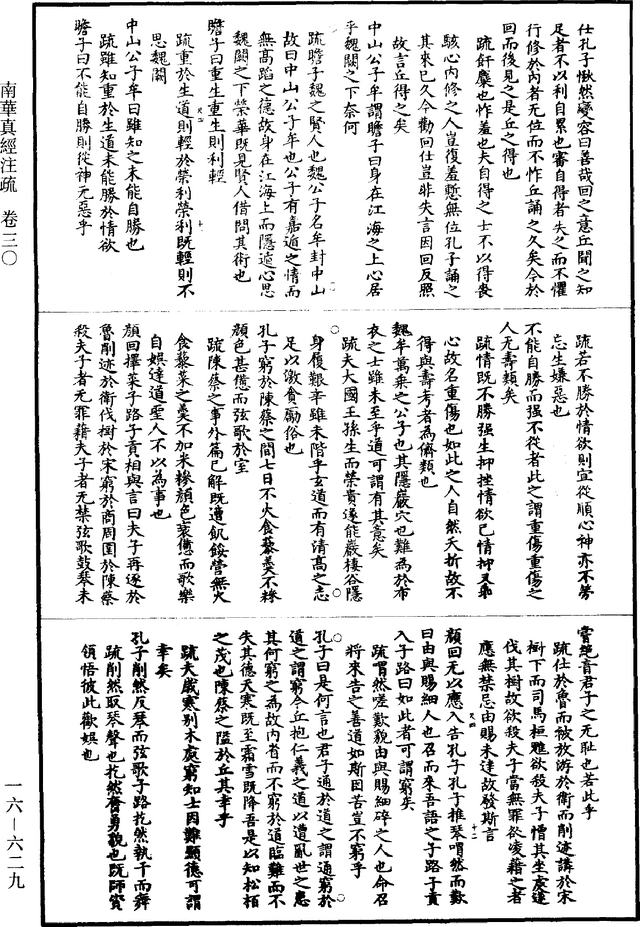 南華真經注疏　卷三〇
一六—六二九
仕孔子愀然變容曰善哉回之意丘聞之知
足者不以利自累也審自得者失之而不懼
行修於內者无位而不怍丘誦之久矣今於
回而後見之是丘之得也
疏飦麋也怍羞也夫自得之士不以得喪
駭心內修之人豈復羞慙無位孔子誦之
其來已久今勸回仕豈非失言因回反照
故言丘得之矣
中山公子牟謂瞻子曰身在江海之上心居
乎魏闕之下奈何
疏瞻子魏之賢人也魏公子名牟封中山
故曰中山公子牟也公子有嘉遁之情而
無高蹈之德故身在江海上而隱遁心思
魏闕之下榮華既見賢人借問其術也
瞻子曰重生重生則利輕
疏重於生道則輕於榮利榮利既輕則不
思魏闕
中山公子牟曰雖知之未能自勝也
疏雖知重於生道未能勝於情欲
瞻子曰不能自勝則從神无惡乎
疏若不勝於情欲則宜從順心神亦不勞
忘生嫌惡也
不能自勝而强不從者此之謂重傷重傷之
人无壽類矣
疏情既不勝强生抑挫情欲已情抑又乖
心故名重傷也如此之人自然夭折故不
得與壽考者為儕類也
魏牟萬乘之公子也其隱巖穴也難為於布
衣之士雖未至乎道可謂有其意矣
疏夫大國王孫生而榮貴遂能巖棲谷隱
身履艱辛雖未階乎玄道而有清高之志
足以激貪勵俗也
孔子窮於陳蔡之間七日不火食藜羹不糝
顏色甚憊而弦歌於室
疏陳蔡之事外篇已解既遭飢餒營無火
食藜菜之羹不加米糝顏色衰憊而歌樂
自娛達道聖人不以為事也
顏回擇菜子路子貢相與言曰夫子再逐於
魯削迹於衛伐樹於宋窮於商周圍於陳蔡
殺夫子者无罪藉夫子者无禁弦歌鼓琴未
嘗絕音君子之无恥也若此乎
疏仕於魯而被放游於衛而削迹講於宋
樹下而司馬桓魋欲殺夫子憎其坐處遂
伐其樹故欲殺夫子當無罪欲凌藉之者
應無禁忌由賜未達故發斯言
顏回无以應入告孔子孔子推琴喟然而歎
曰由與賜細人也召而來吾語之子路子貢
入子路曰如此者可謂窮矣
疏喟然嗟歎貌由與賜細碎之人也命召
將來告之善道如斯困苦豈不窮乎
孔子曰是何言也君子通於道之謂通窮於
道之謂窮今丘抱仁義之道以遭亂世之患
其何窮之為故內省而不窮於道臨難而不
失其德天寒既至霜雪既降吾是以知松栢
之茂也陳蔡之隘於丘其幸乎
疏夫歲寒別木處窮知士因難顯德可謂
幸矣
孔子削然反琴而弦歌子路扢然執干而舞
疏削然取琴聲也扢然奮勇貌也既師資
領悟彼此歡娛也